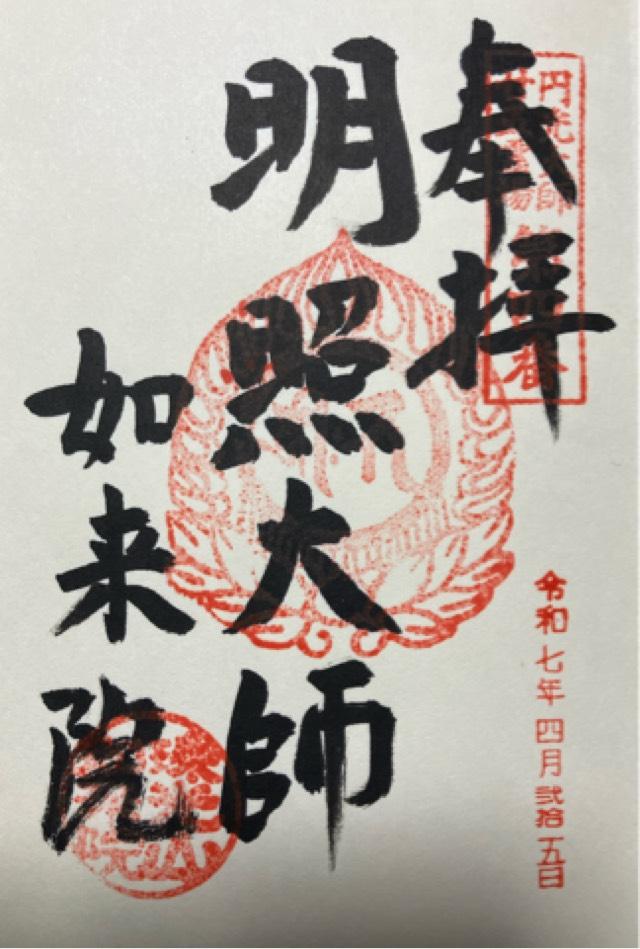 奉拝
円光大師
廿五霊場
番
令和七年四月弐拾五日
明照大師
如来院